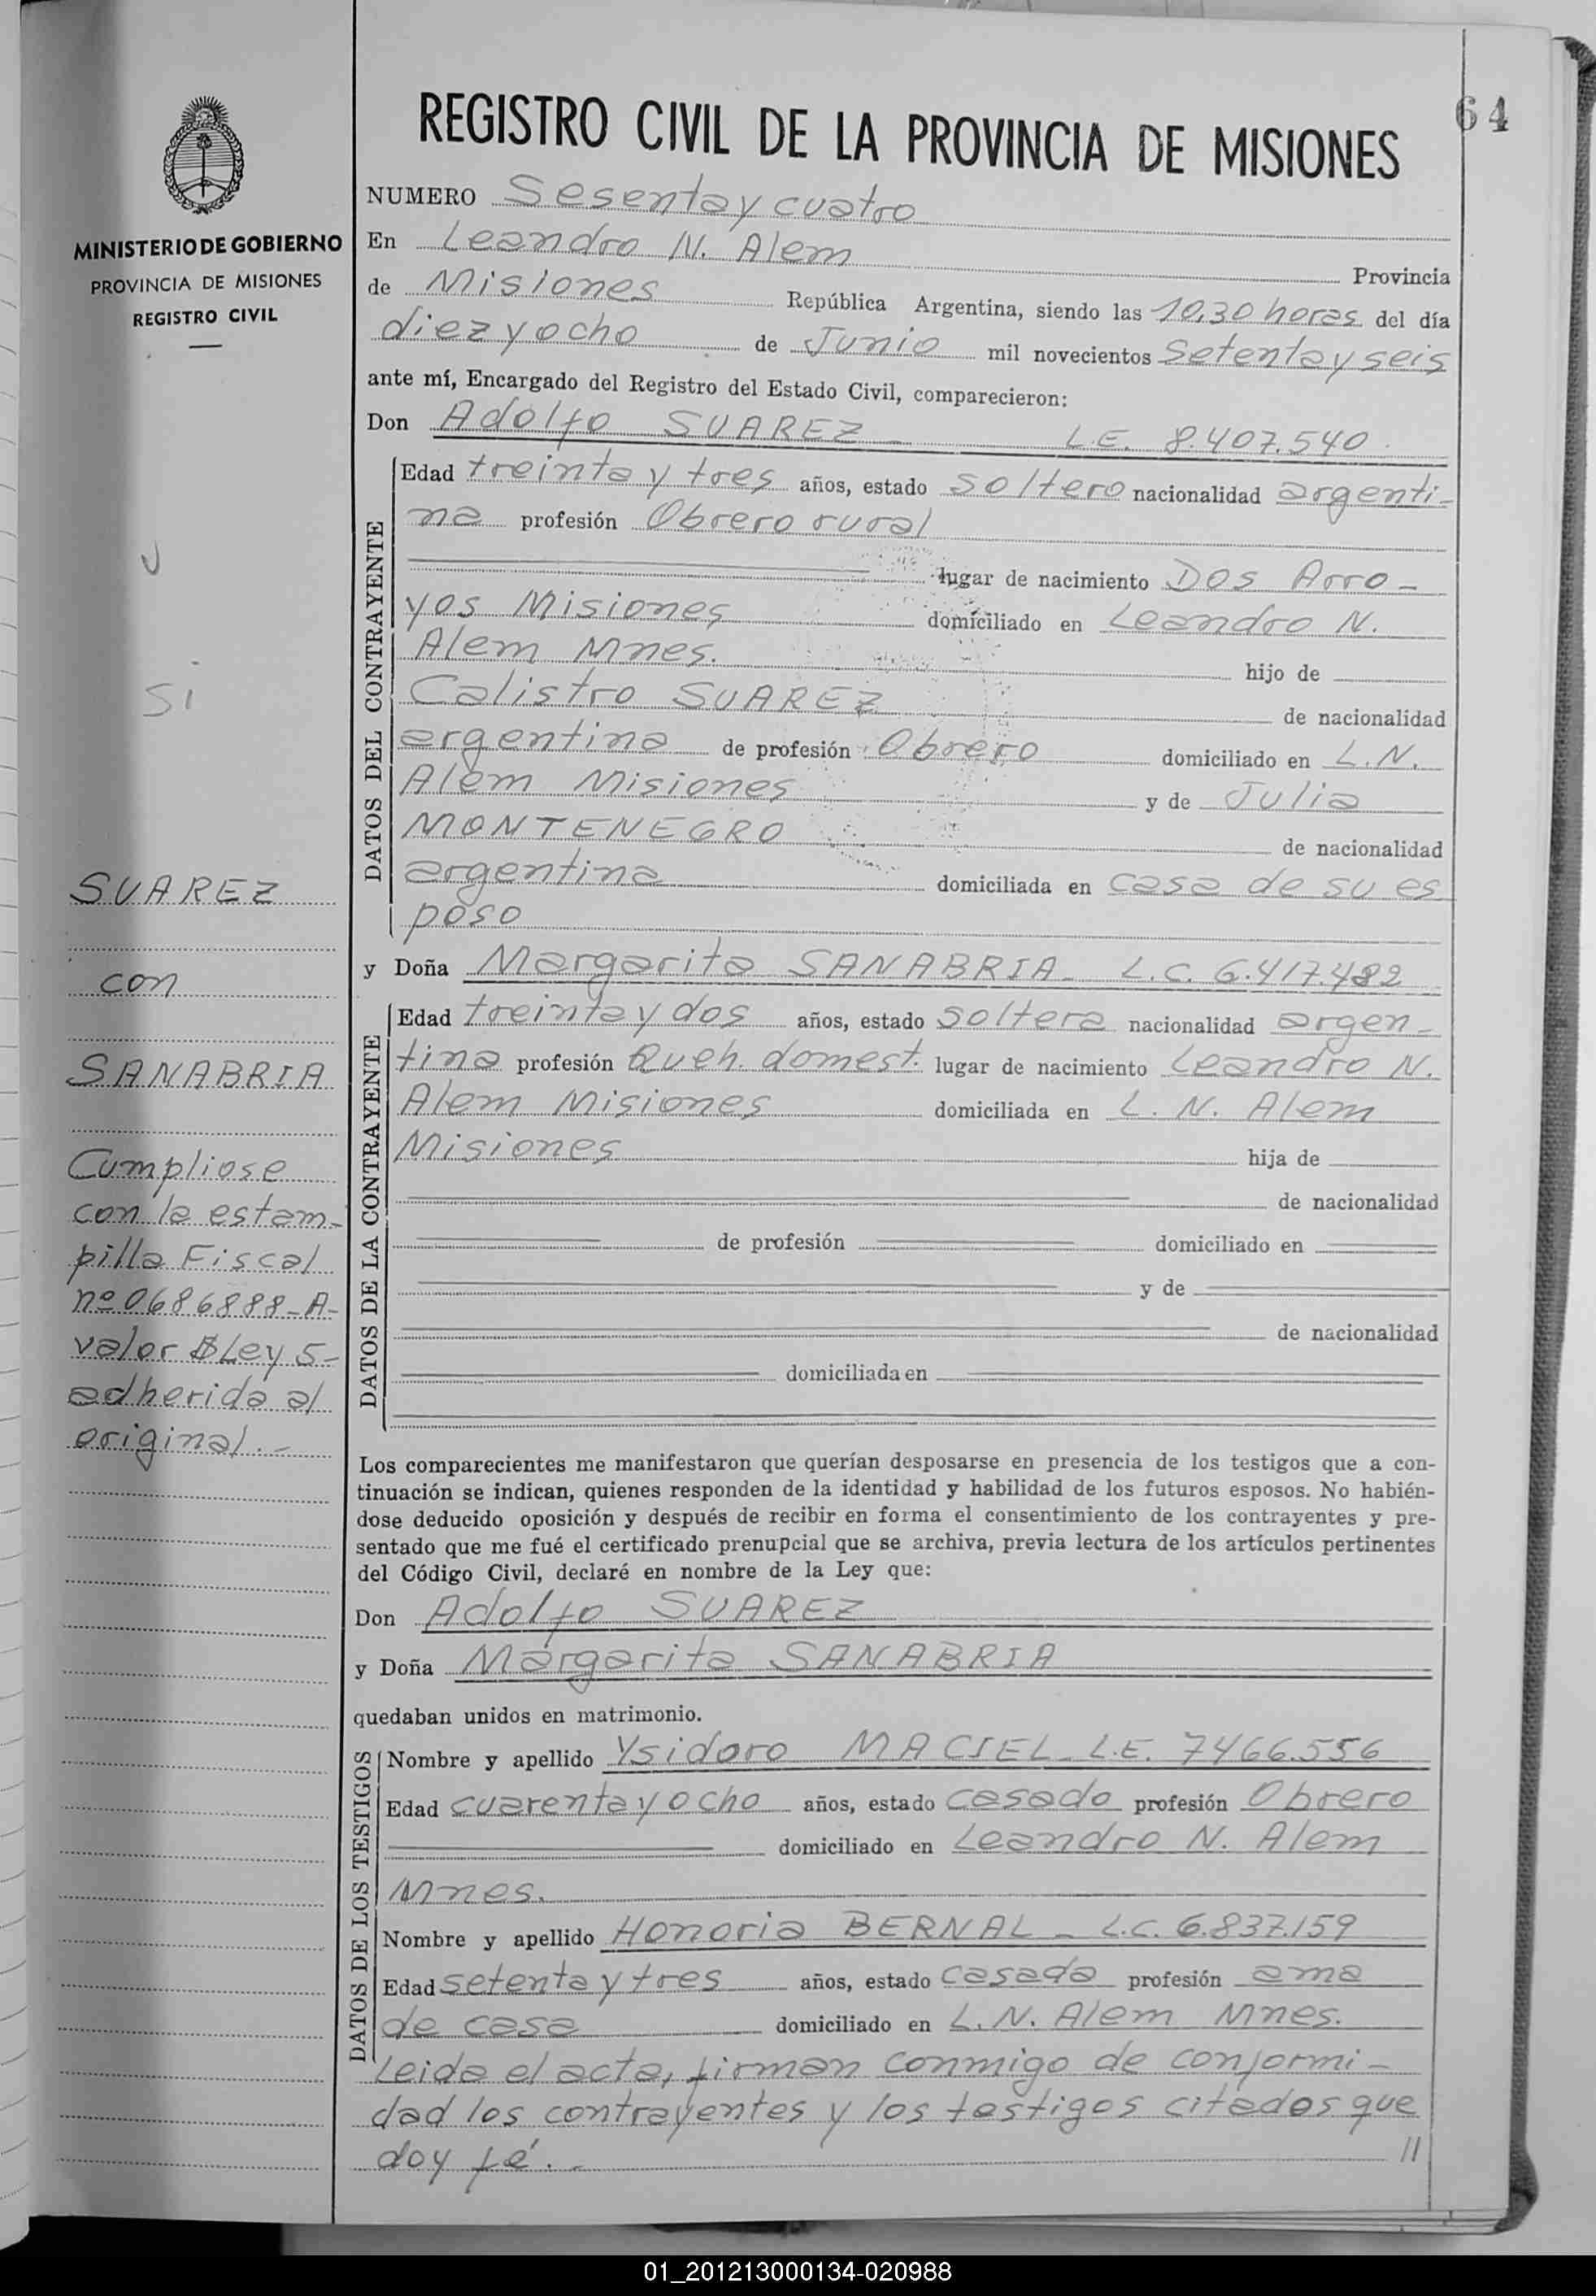 64
REGISTRO CIVIL DE LA PROVINCIA DE MISIONES
MINISTERIO DE GOBIERNO
PROVINCIA DE MISIONES
REGISTRO CIVIL
NUMERO Sesenta y cuatro
En Leandro N. Alem Provincia
de Misiones República Argentina, siendo las 10,30 horas del día
diez y ocho de Junio mil novecientos setenta y seis
ante mí, Encargado del Registro del Estado Civil, comparecieron:
Don Adolfo SUAREZ - L.E. 8.407.540
DATOS DEL CONTRAYENTE
Edad treinta y tres años, estado soltero nacionalidad argenti-
na profesión Obrero rural
lugar de nacimiento Dos Arro-
yos Misiones domiciliado en Leandro N.
Alem Mnes. hijo de
Calistro SUAREZ de nacionalidad
argentina de profesión Obrero domiciliado en L.N.
Alem Misiones y de Julia
MONTENEGRO de nacionalidad
argentina domiciliada en casa de su es
poso
y Doña Margarita SANABRIA - L.C. 6.417.482
DATOS DE LA CONTRAYENTE
Edad treinta y dos años, estado soltera nacionalidad argen-
tina profesión Queh. domest. lugar de nacimiento Leandro N.
Alem Misiones domiciliada en L. N. Alem
Misiones hija de
de nacionalidad
de profesión domiciliado en
y de
de nacionalidad
domiciliada en
Los comparecientes me manifestaron que querían desposarse en presencia de los testigos que a con-
tinuación se indican, quienes responden de la identidad y habilidad de los futuros esposos. No habién-
dose deducido oposición y después de recibir en forma el consentimiento de los contrayentes y pre-
sentado que me fué el certificado prenupcial que se archiva, previa lectura de los artículos pertinentes
del Código Civil, declaré en nombre de la Ley que:
Don Adolfo SUAREZ
y Doña Margarita SANABRIA
quedaban unidos en matrimonio.
DATOS DE LOS TESTIGOS
Nombre y apellido Ysidoro MACIEL - L.E. 7466.556
Edad cuarenta y ocho años, estado casado profesión Obrero
domiciliado en Leandro N. Alem
Mnes.
Nombre y apellido Honoria BERNAL - L.C. 6.837.159
Edad setenta y tres años, estado casada profesión ama
de casa domiciliado en L.N. Alem Mnes.
Leida el acta, firman conmigo de conformi-
dad los contrayentes y los testigos citados que
doy fé. - //
SI
SUAREZ
con
SANABRIA
Cumpliose
con la estam-
pilla Fiscal
nº 0686888-A-
valor $Ley 5-
adherida al
original. -
01_201213000134-020988